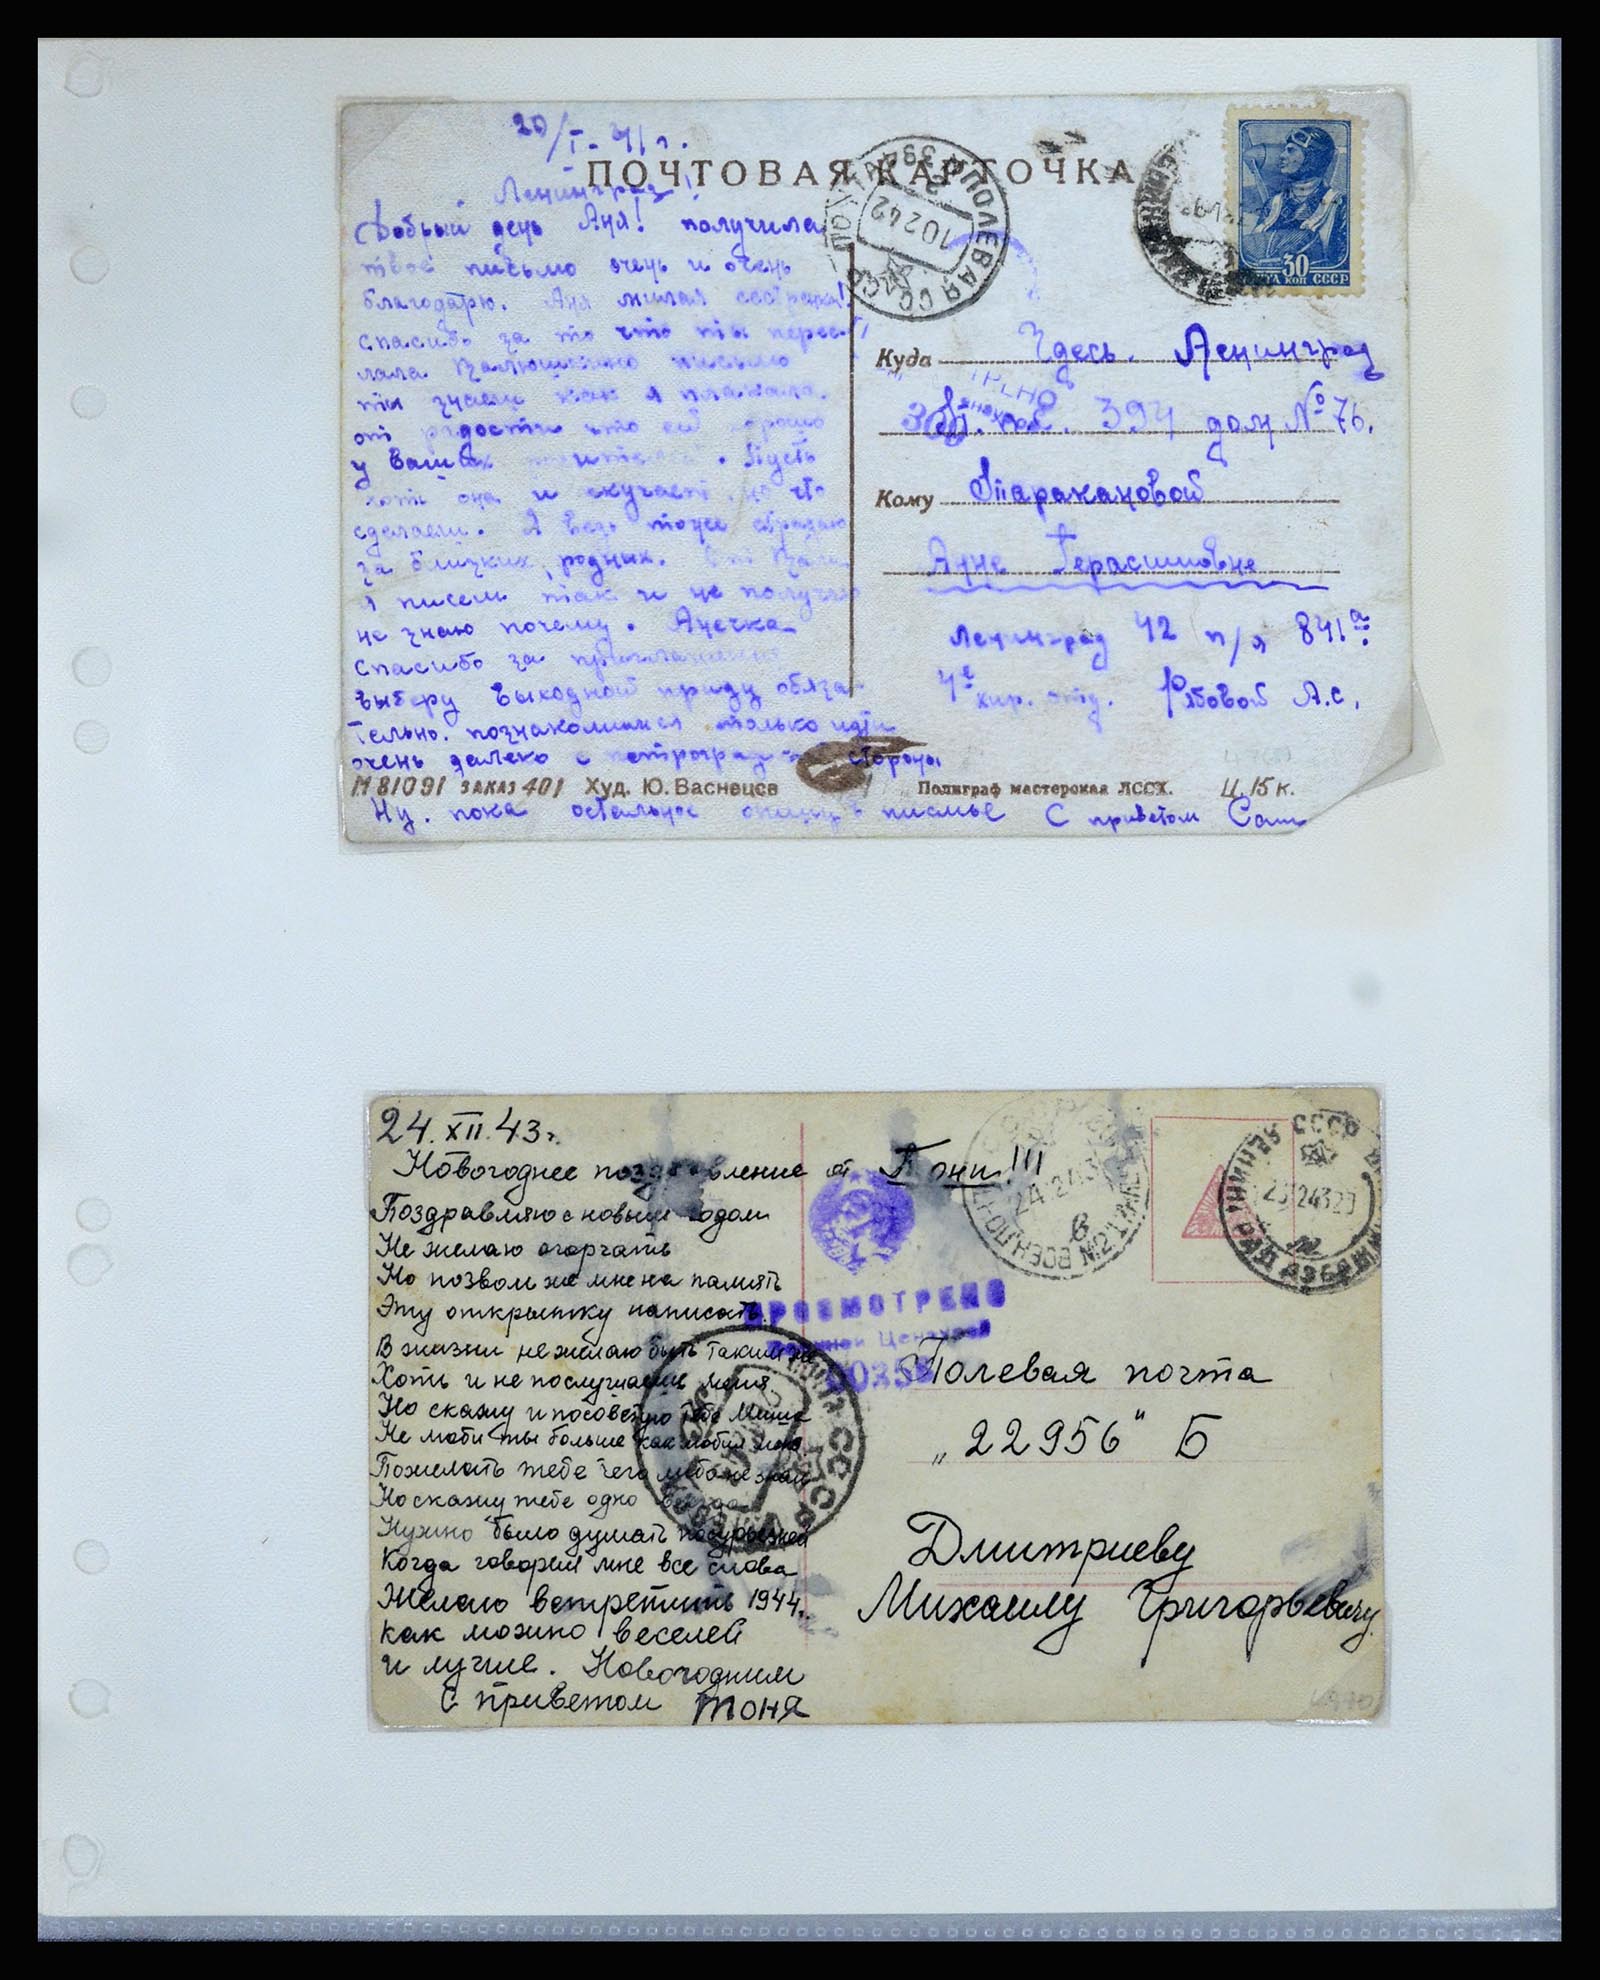 20/I-41г.
ПОЧТОВАЯ КАРТОЧКА
Ленинград!
Добрый день Аня! получила
твоё письмо очень и очень
благодарю. Аня милая сестричка!
спасибо за то что ты перес-
лала письмо
ты знаеш как я плакала
от радости что ей хорошо
у Ваших . Пусть
хоть она и скучает но что
сделаеш. Я ведь тоже
за близких родных.
я писем так и не получаю
не знаю почему. Анечка
Спасибо за приглашение
выберу выходной приду обяза-
тельно. познакомимся только идти
очень далеко с петроград стороны
М 81091 ЗАКАЗ 401 Худ. Ю. Васнецов
Полиграф мастерская ЛССХ. Ц. 15 к.
Ну. пока остальное опишу в письме С приветом
ПОЛЕВАЯ СССР
10 2 42
394
30
ПОЧТА КОП СССР
Куда Здесь. Ленинград
п. п.с. 394 дом № 76.
Кому Таракановой
Анне Герасимовне
Ленинград 42 п/я 841а
4е хир. отд. А.С.
24.XII.43г.
Новогоднее поздравление от Тони!!!
Поздравляю с новым годом
Не желаю огорчать
Но позволь же мне на память
Эту открытку написать.
В жизни не желаю быть таким же
Хоть и не послушаешь меня
Но скажу и посоветую тебе Миша
Не люби ты больше как любил меня.
Пожелать тебе чего либо не знаю
Но скажу тебе одно всегда
Нужно было думать посурьезней
Когда говорил мне все слова
Желаю встретить 1944г.
как можно веселей
и лучше. Новогодним
С приветом Тоня
ПРОСМОТРЕНО
Военной Цензурой
СССР
24 12 43
СССР ЛЕНИНГРАД
Полевая почта
„22956" Б
Дмитриеву
Михаилу Григорьевичу